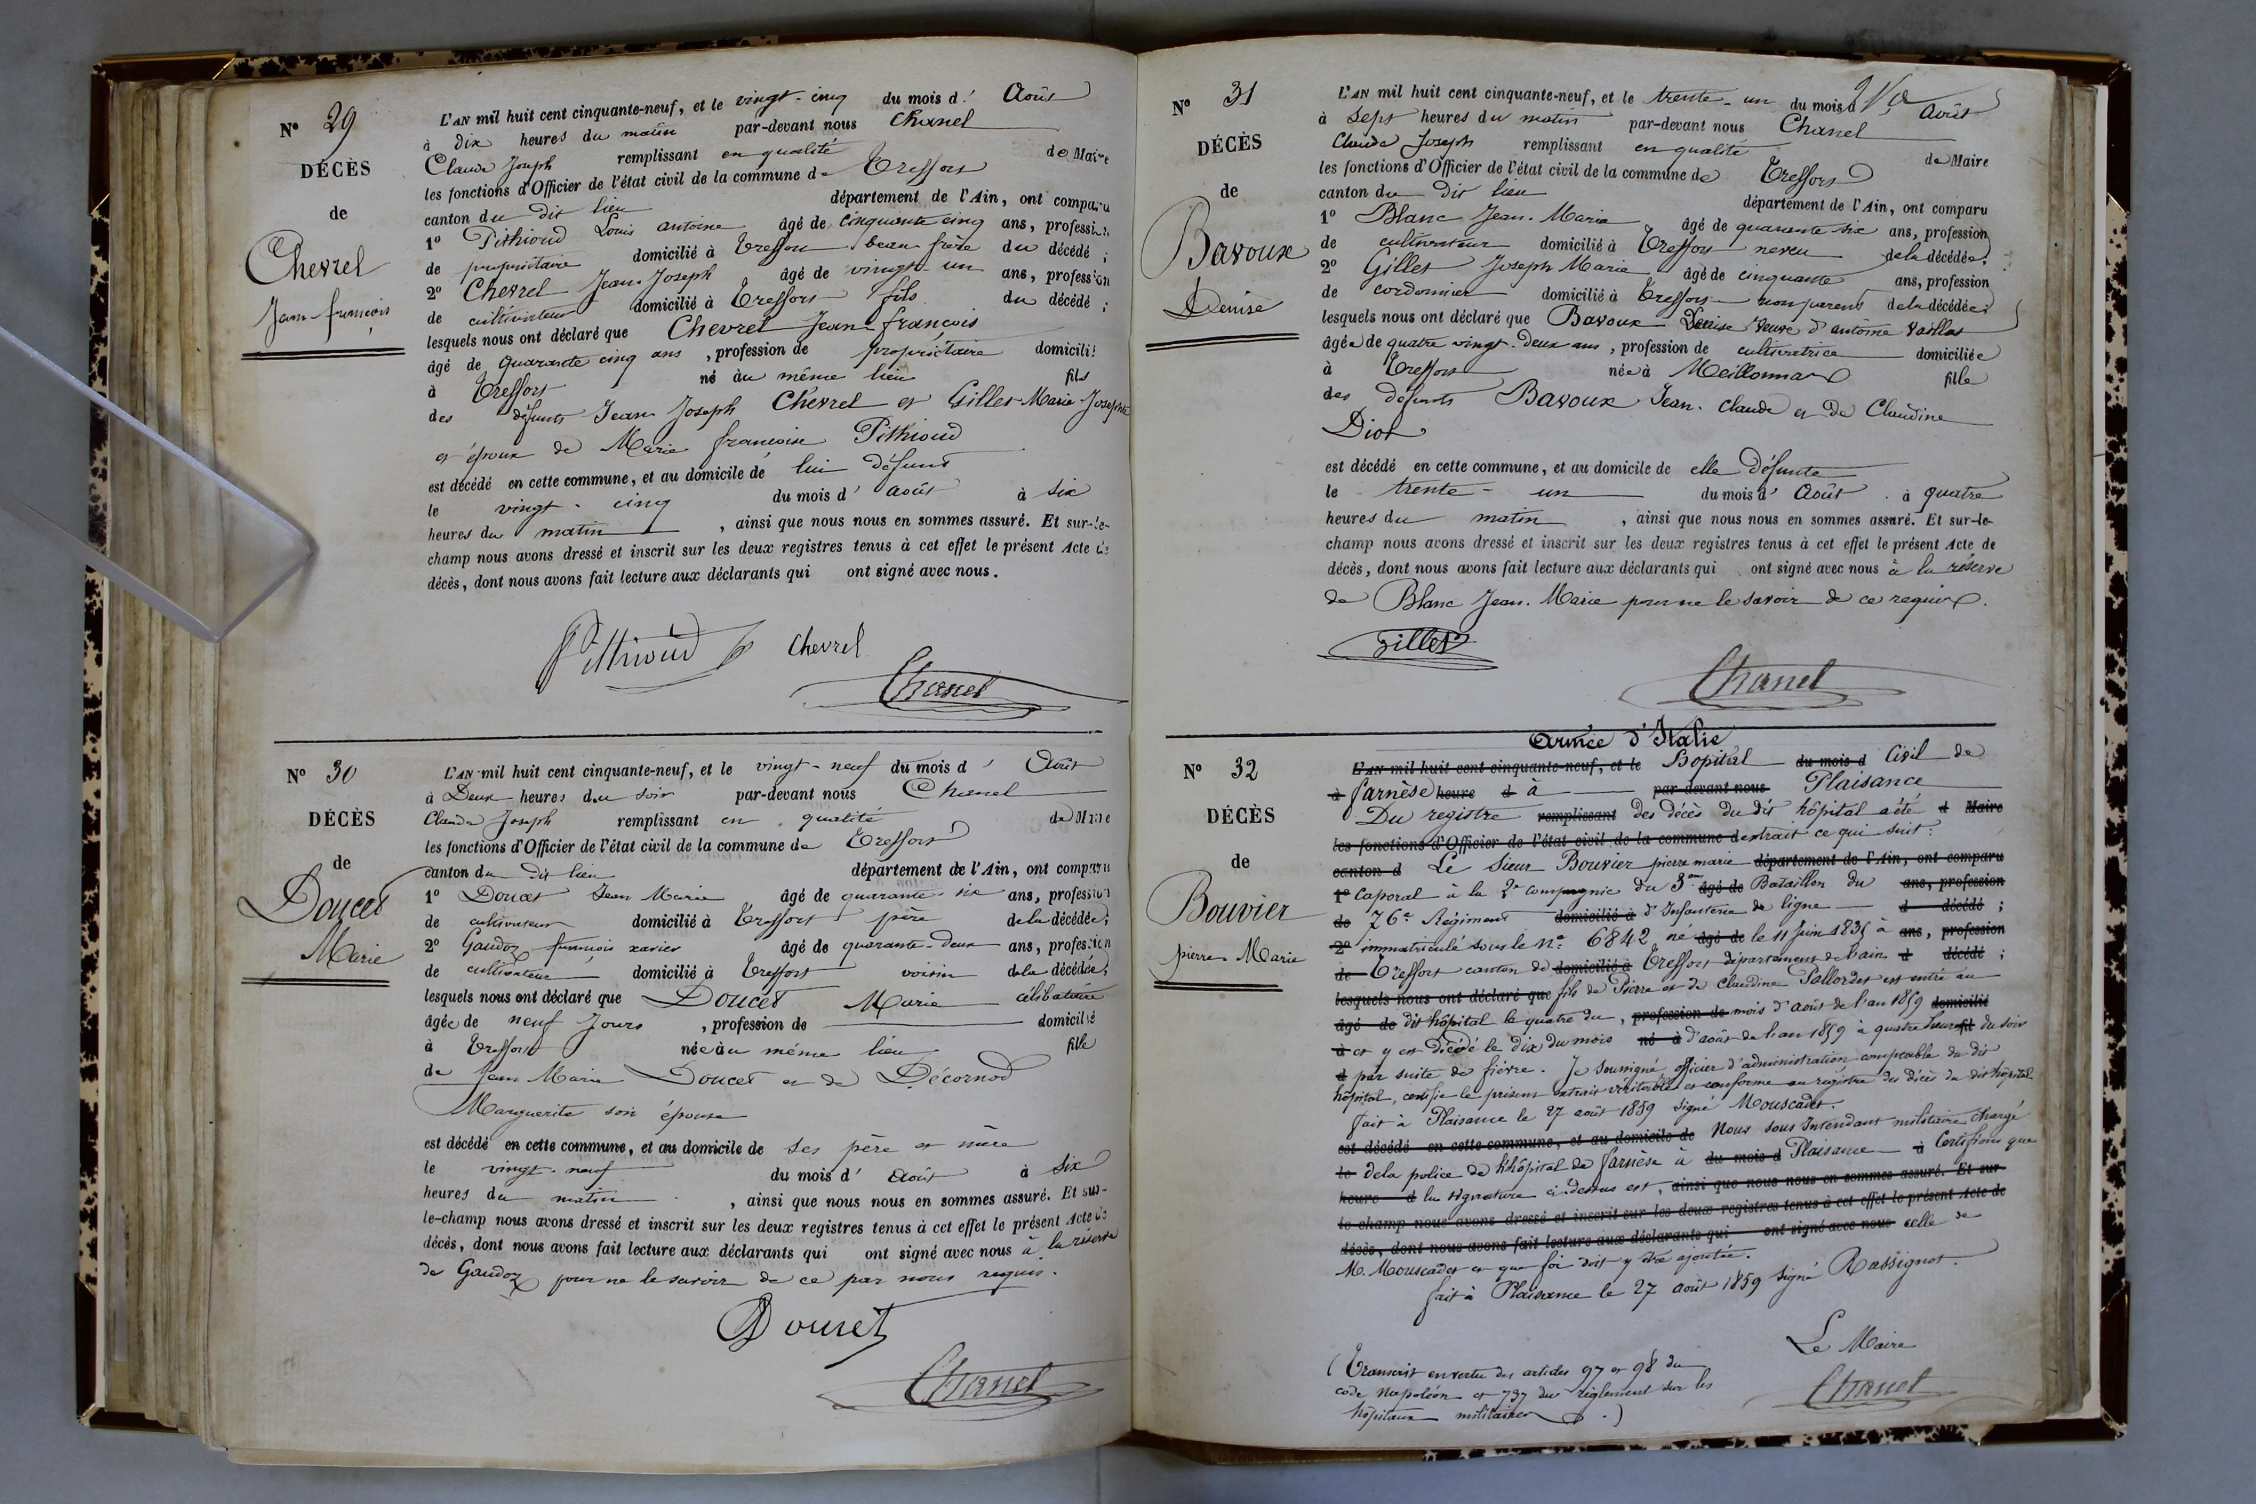 N° 29
DÉCÈS
de
Chevrel
Jean-françois
L'AN mil huit cent cinquante-neuf, et le vingt-cinq du mois d' Août
à dix heures du matin par-devant nous Chanel
Claude Joseph remplissant en qualité de Maire
les fonctions d'Officier de l'état civil de la commune de Treffort
canton du dit lieu département de l'Ain, ont comparu
1° Pithioud Louis antoine âgé de cinquante cinq ans, profession
de propriétaire domicilié à Treffort beau frère du décédé ;
2° Chevrel Jean-Joseph âgé de vingt-un ans, profession
de cultivateur domicilié à Treffort fils du décédé ;
lesquels nous ont déclaré que Chevrel Jean-françois
âgé de quarante cinq ans, profession de propriétaire domicilié
à Treffort né au même lieu fils
des défunts Jean Joseph Chevrel et Gillet Marie Josephte
et époux de Marie françoise Pithioud
est décédé en cette commune, et au domicile de lui défunt
le vingt-cinq du mois d'août à six
heures du matin, ainsi que nous nous en sommes assuré. Et sur-le-
champ nous avons dressé et inscrit sur les deux registres tenus à cet effet le présent Acte de
décès, dont nous avons fait lecture aux déclarants qui ont signé avec nous.
Pithioud Chevrel
Chanel
N° 30
DÉCÈS
de
Doucet
Marie
L'AN mil huit cent cinquante-neuf, et le vingt-neuf du mois d' Août
à Deux heures du soir par-devant nous Chanel
Claude Joseph remplissant en qualité de Maire
les fonctions d'Officier de l'état civil de la commune de Treffort
canton du dit lieu département de l'Ain, ont comparu
1° Doucet Jean Marie âgé de quarante-six ans, profession
de cultivateur domicilié à Treffort père de la décédée ;
2° Gaudoz françois xavier âgé de quarante-deux ans, profession
de cultivateur domicilié à Treffort voisin de la décédée ;
lesquels nous ont déclaré que Doucet Marie célibataire
âgée de neuf Jours, profession de domicilié
à Treffort née au même lieu fille
de Jean Marie Doucet et de Décornod
Marguerite son épouse
est décédé en cette commune, et au domicile de ses père et mère
le vingt-neuf du mois d' Août à six
heures du matin, ainsi que nous nous en sommes assuré. Et sur-
le-champ nous avons dressé et inscrit sur les deux registres tenus à cet effet le présent Acte de
décès, dont nous avons fait lecture aux déclarants qui ont signé avec nous à la réserve
de Gaudoz pour ne le savoir de ce par nous requis.
Doucet
Chanel
N° 31
DÉCÈS
de
Bavoux
Denise
L'AN mil huit cent cinquante-neuf, et le trente-un du mois d' Août
à sept heures du matin par-devant nous Chanel
Claude Joseph remplissant en qualité de Maire
les fonctions d'Officier de l'état civil de la commune de Treffort
canton du dit lieu département de l'Ain, ont comparu
1° Blanc Jean-Marie âgé de quarante six ans, profession
de cultivateur domicilié à Treffort neveu de la décédée ;
2° Gillet Joseph Marie âgé de cinquante ans, profession
de cordonnier domicilié à Treffort non parent de la décédée ;
lesquels nous ont déclaré que Bavoux Denise Veuve d'antoine Vaillat
âgée de quatre vingt-deux ans, profession de cultivatrice domiciliée
à Treffort née à Meillonnas fille
des défunts Bavoux Jean-Claude et de Claudine
Diot
est décédé en cette commune, et au domicile de elle défunte
le trente-un du mois d' Août à quatre
heures du matin, ainsi que nous nous en sommes assuré. Et sur-le-
champ nous avons dressé et inscrit sur les deux registres tenus à cet effet le présent Acte de
décès, dont nous avons fait lecture aux déclarants qui ont signé avec nous à la réserve
de Blanc Jean-Marie pour ne le savoir de ce requis.
Gillet
Chanel
N° 32
DÉCÈS
de
Bouvier
pierre Marie
Armée d'Italie
L'AN mil huit cent cinquante-neuf, et le hôpital du mois d Civil de
à farnèse heure d à par-devant nous Plaisance
Du registre remplissant des décès du dit hôpital a été d Maire
les fonctions d'Officier de l'état civil de la commune d extrait ce qui suit :
canton d Le Sieur Bouvier pierre marie département de l'Ain, ont comparu
1° Caporal à la 2e compagnie du 3me âgé de Bataillon du ans, profession
de 76e Régiment domicilié à d'Infanterie de ligne d décédé ;
2° immatriculé sous le N° 6842 né âgé de le 11 Juin 1835 à ans, profession
de Treffort canton de domicilié à Treffort département de l'ain d décédé ;
lesquels nous ont déclaré que fils de Pierre et de Claudine Pallordet est entré au
âgé de dit hôpital le quatre du, profession de mois d'août de l'an 1859 domicilié
à et y est décédé le dix du mois né à d'août de l'an 1859 à quatre heures fil du soir
d par suite de fièvre. Je soussigné officier d'administration comptable du dit
hôpital, certifie le présent extrait véritable et conforme au registre des décès du dit hôpital
fait à Plaisance le 27 août 1859 signé Mouscadet.
est décédé en cette commune, et au domicile de Nous sous Intendant militaire chargé
le de la police de l'hôpital de farnèse à du mois d Plaisance à Certifions que
heure d la signature ci-dessus est, ainsi que nous nous en sommes assuré. Et sur
le champ nous avons dressé et inscrit sur les deux registres tenus à cet effet le présent Acte de
décès, dont nous avons fait lecture aux déclarants qui ont signé avec nous celle de
M. Mouscadet et que foi doit y être ajoutée.
fait à Plaisance le 27 août 1859 signé Rassignot.
Le Maire
Chanel
(Transcrit en vertu des articles 97 et 98 du
code Napoléon et 737 du règlement sur les
hôpitaux militaires.)